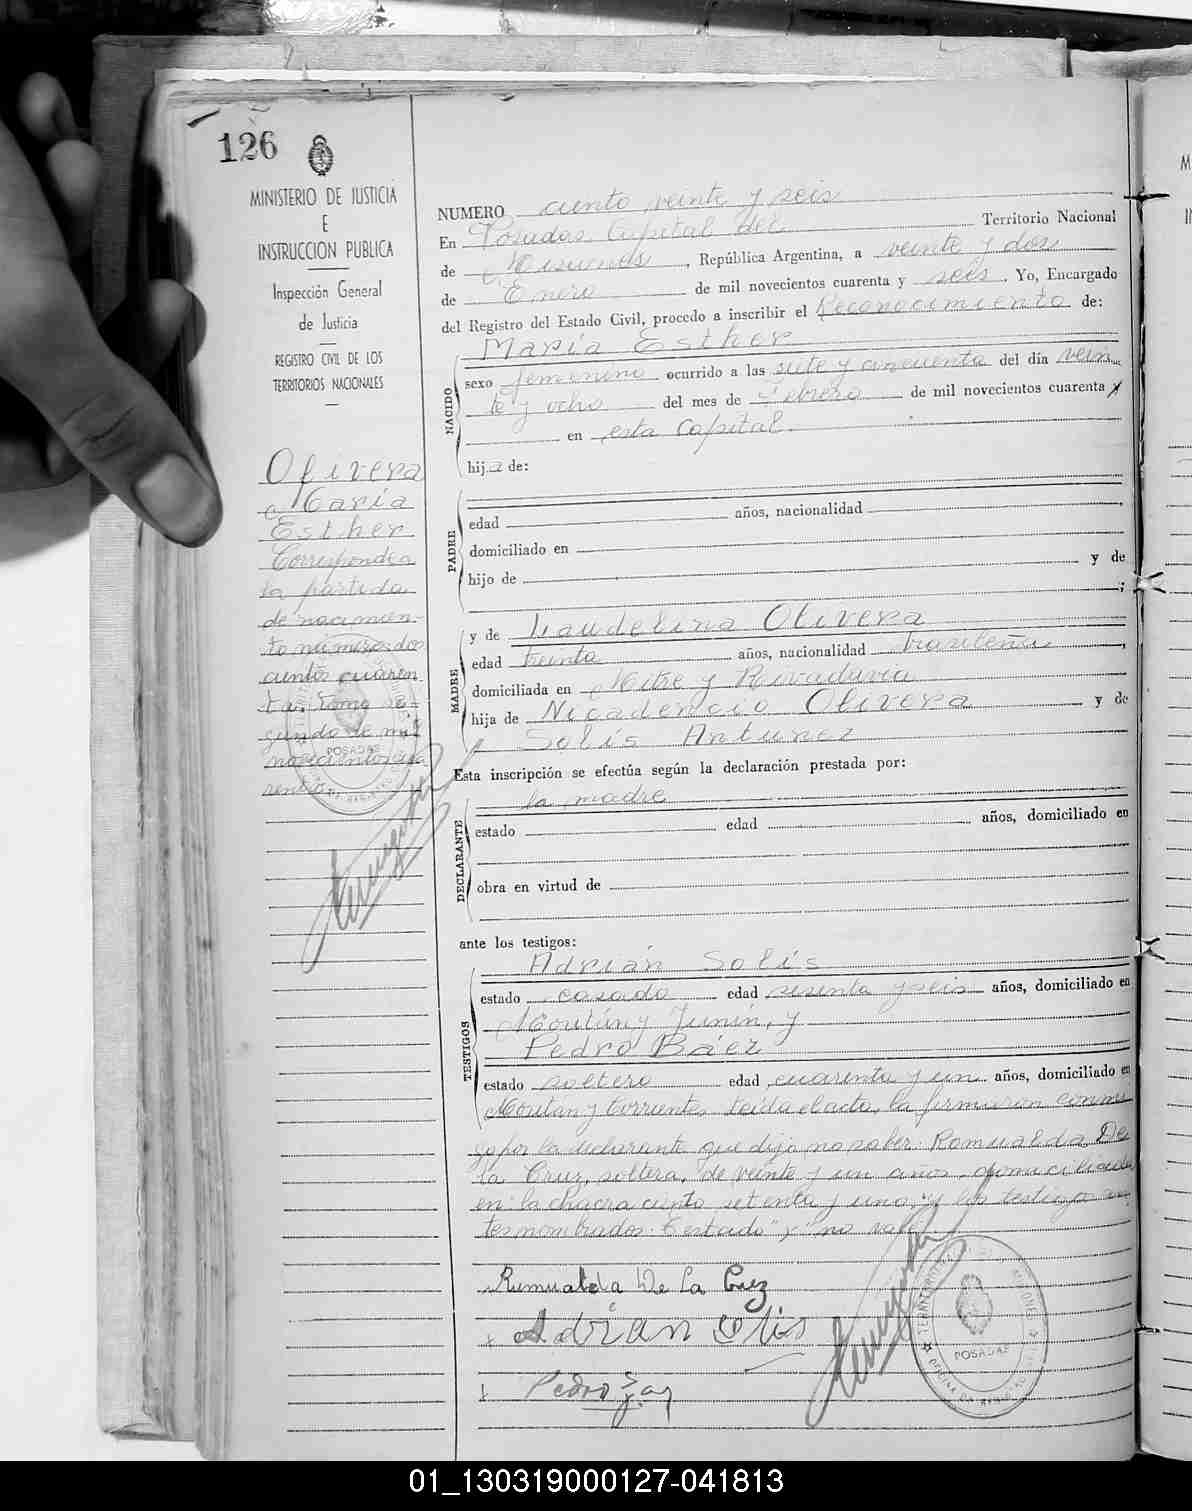 126
MINISTERIO DE JUSTICIA
E
INSTRUCCION PUBLICA
Inspección General
de Justicia
REGISTRO CIVIL DE LOS
TERRITORIOS NACIONALES
Olivera
María
Esther
Corresponde a
la partida
de nacimien-
to número dos
cientos cuaren
ta. Tomo se-
gundo de mil
novecientos cua
renta.
POSADAS
NUMERO ciento veinte y seis
En Posadas, Capital del Territorio Nacional
de Misiones, República Argentina, a veinte y dos
de Enero de mil novecientos cuarenta y seis. Yo, Encargado
del Registro del Estado Civil, procedo a inscribir el Reconocimiento de:
María Esther
NACIDO
sexo femenino ocurrido a las siete y cincuenta del día vein
te y ocho del mes de Febrero de mil novecientos cuarenta y
en esta Capital.
hija de:
PADRE
edad años, nacionalidad
domiciliado en
hijo de y de
;
MADRE
y de Laudelina Olivera
edad treinta años, nacionalidad brasileña,
domiciliada en Mitre y Rivadavia
hija de Nicadencio Olivera y de
Solis Antunez
Esta inscripción se efectúa según la declaración prestada por:
la madre
DECLARANTE
estado edad años, domiciliado en
obra en virtud de
ante los testigos:
TESTIGOS
Adrian Solís
estado casado edad sesenta y seis años, domiciliado en
Junín, y
Pedro Báez
estado soltero edad cuarenta y un años, domiciliado en
y Corrientes. Leída el acta, la firmaron conmi
go por la declarante que dijo no saber Romualda De
la Cruz, soltera, de veinte y un años, domiciliada
en la chacra ciento setenta y uno, y los testigos an
tes nombrados. Testado "y" no vale
Rumualda De La Cruz
Adrian Solis
Pedro
POSADAS
01_130319000127-041813